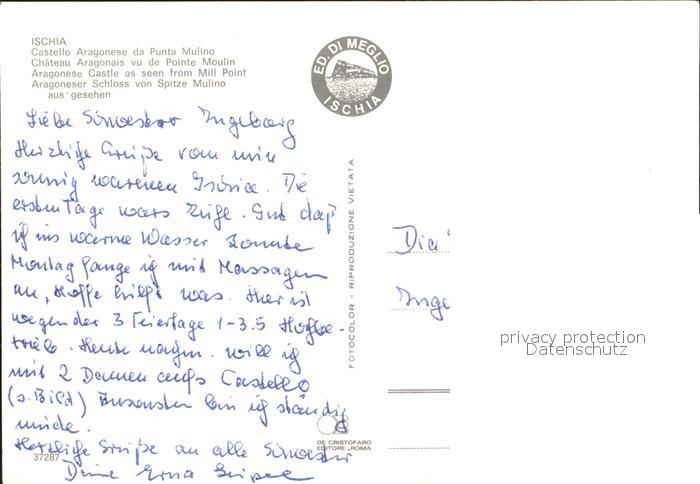 ISCHIA
Castello Aragonese da Punta Mulino
Château Aragonais vu de Pointe Moulin
Aragonese Castle as seen from Mill Point
Aragoneser Schloss von Spitze Mulino
aus gesehen
ED. DI MEGLIO
ISCHIA
Liebe Schwester Ingeborg
Herzliche Grüße vom nun
sonnig warmen Ischia. Die
ersten Tage wars kühl. Gut daß
ich ins warme Wasser konnte
Montag fange ich mit Massagen
an, hoffe hilft was. Hier ist
wegen der 3 Feiertage 1-3.5 Hochbe-
trieb. Heute nachm. will ich
mit 2 Damen aufs Castello
(s. Bild) Ansonsten bin ich ständig
müde.
Herzliche Grüße an alle Schwestern
Deine Erna
37287
FOTOCOLOR - RIPRODUZIONE VIETATA
DE CRISTOFARO
EDITORE - ROMA
Inge
privacy protection
Datenschutz